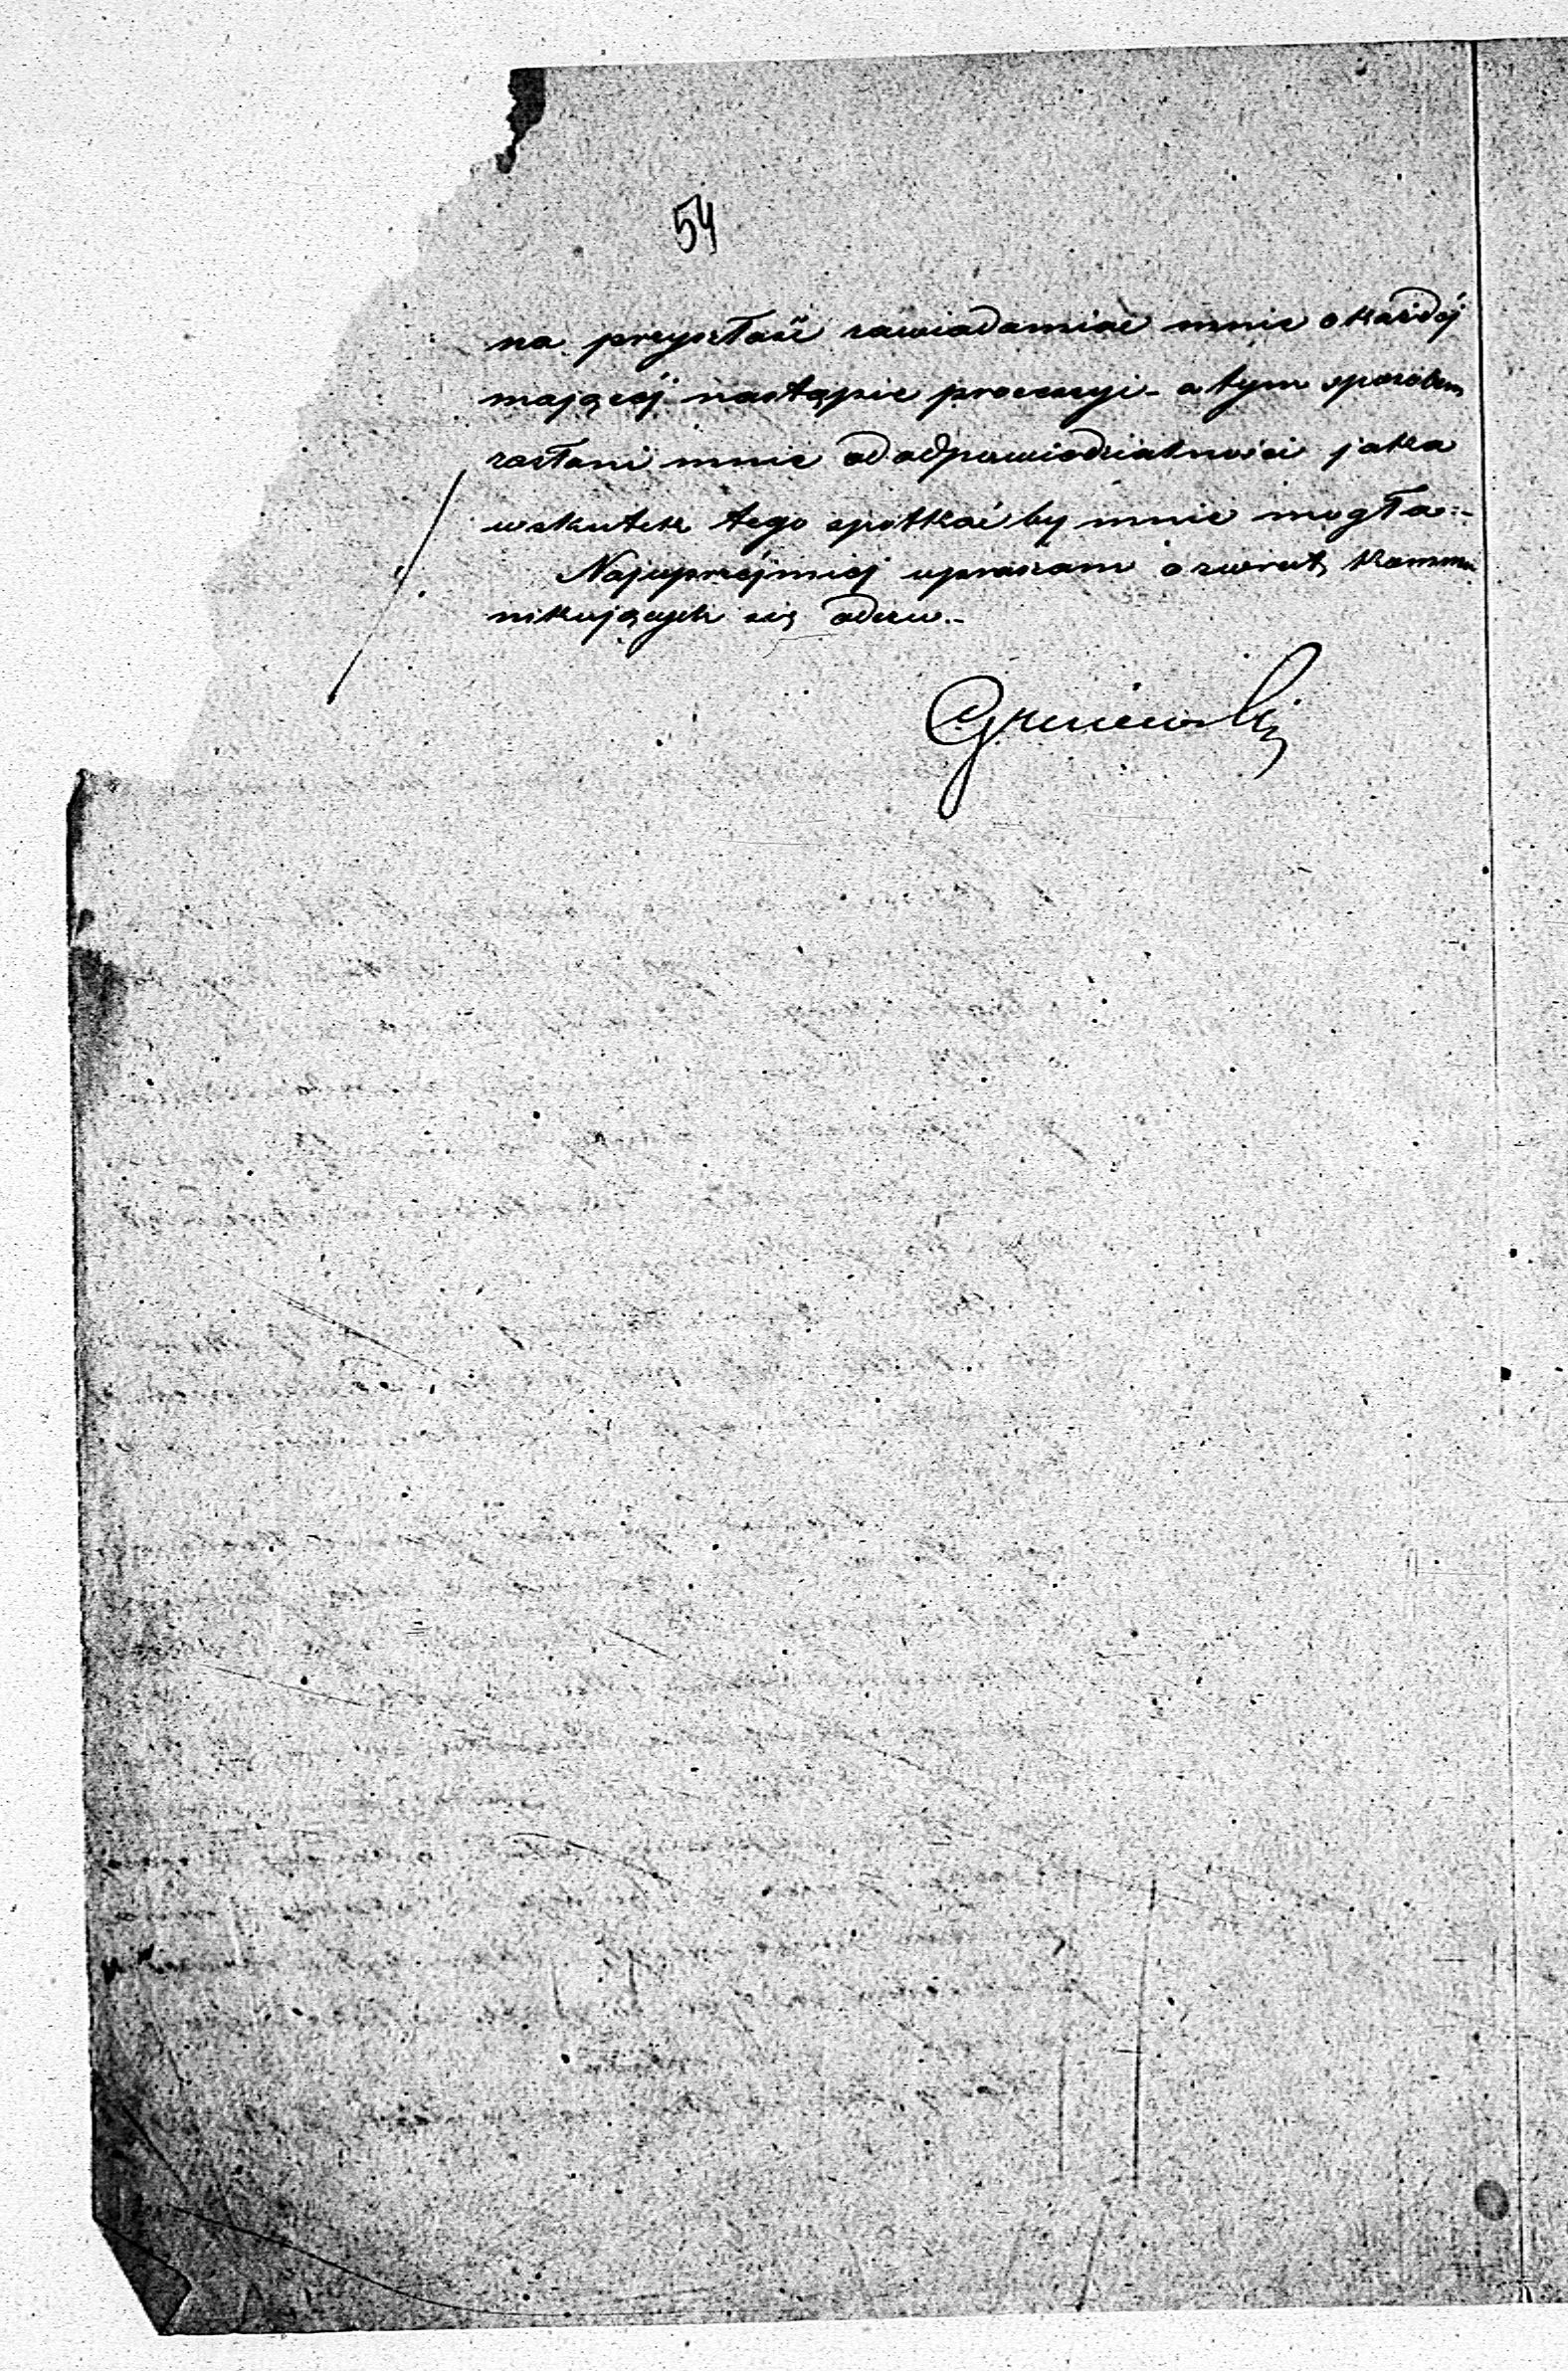 54
na przyszłość zawiadamiać mnie o każdéj
mającéj nastąpić processyi - a tym sposobem
zasłoni mnie od odpowiedzialności jaka
wskutek tego spotkać by mnie mogła. -
Najuprzéjmiéj upraszam o zwrot kommu
nikujących się odezw. -